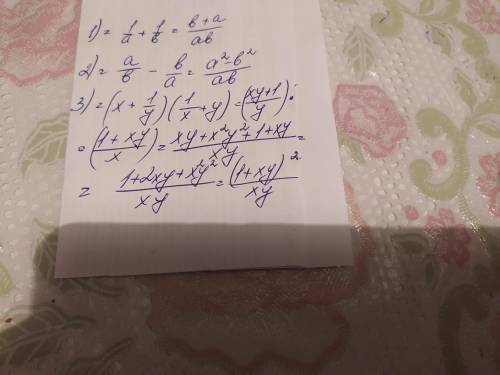 1) = 1/a + 1/b = b+a/ab
2) = a/b - b/a = a²-b²/ab
3) = (x + 1/y)(1/x + y) = (xy+1/y) ·
· (1+xy/x) = xy+x²y²+1+xy/xy =
= 1+2xy+x²y²/xy = (1+xy)²/xy